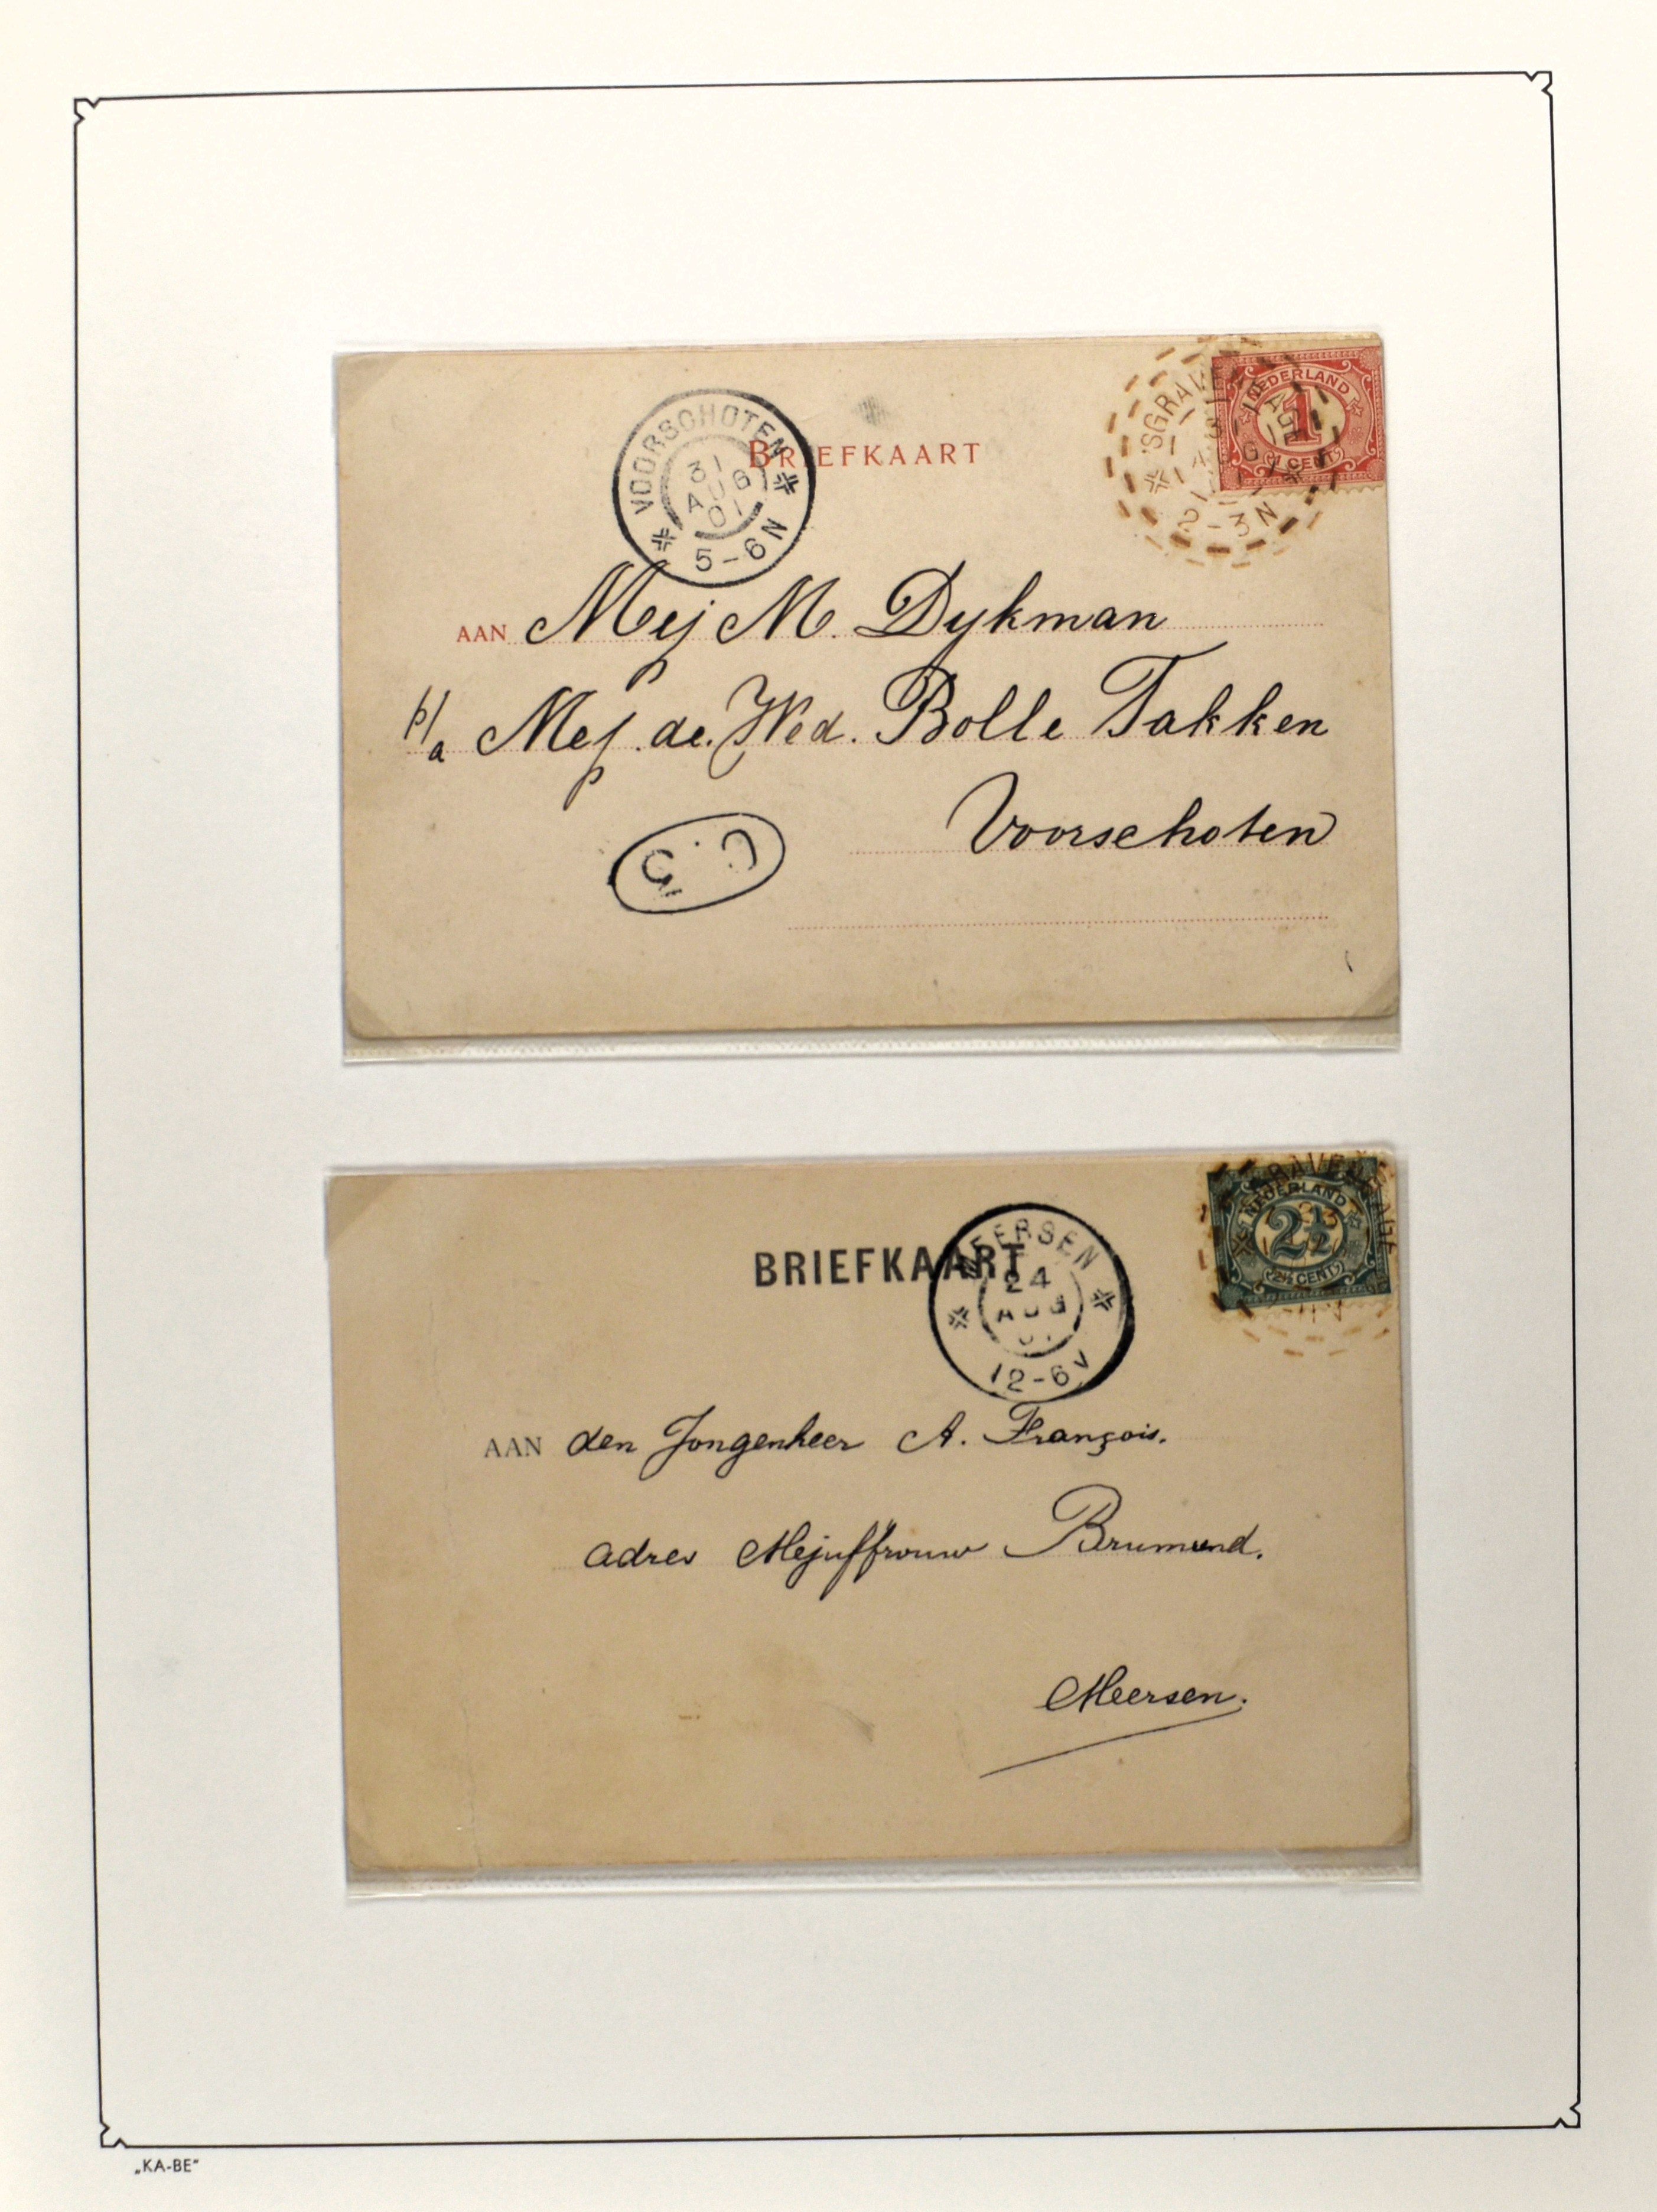 VOORSCHOTEN
31
AUG
01
5-6N
BRIEFKAART
'SGRAVENHAGE
31
AUG
2-3N
NEDERLAND
1
1 CENT
AAN Mej M. Dykman
p/a Mej. de Wed. Bolle Takken
Voorschoten
C. 5
BRIEFKAART
MEERSEN
24
AUG
01
12-6V
NEDERLAND
2½
2½ CENT
AAN den Jongenheer A. François.
adres Mejuffrouw Brumund.
Meersen.
„KA-BE"